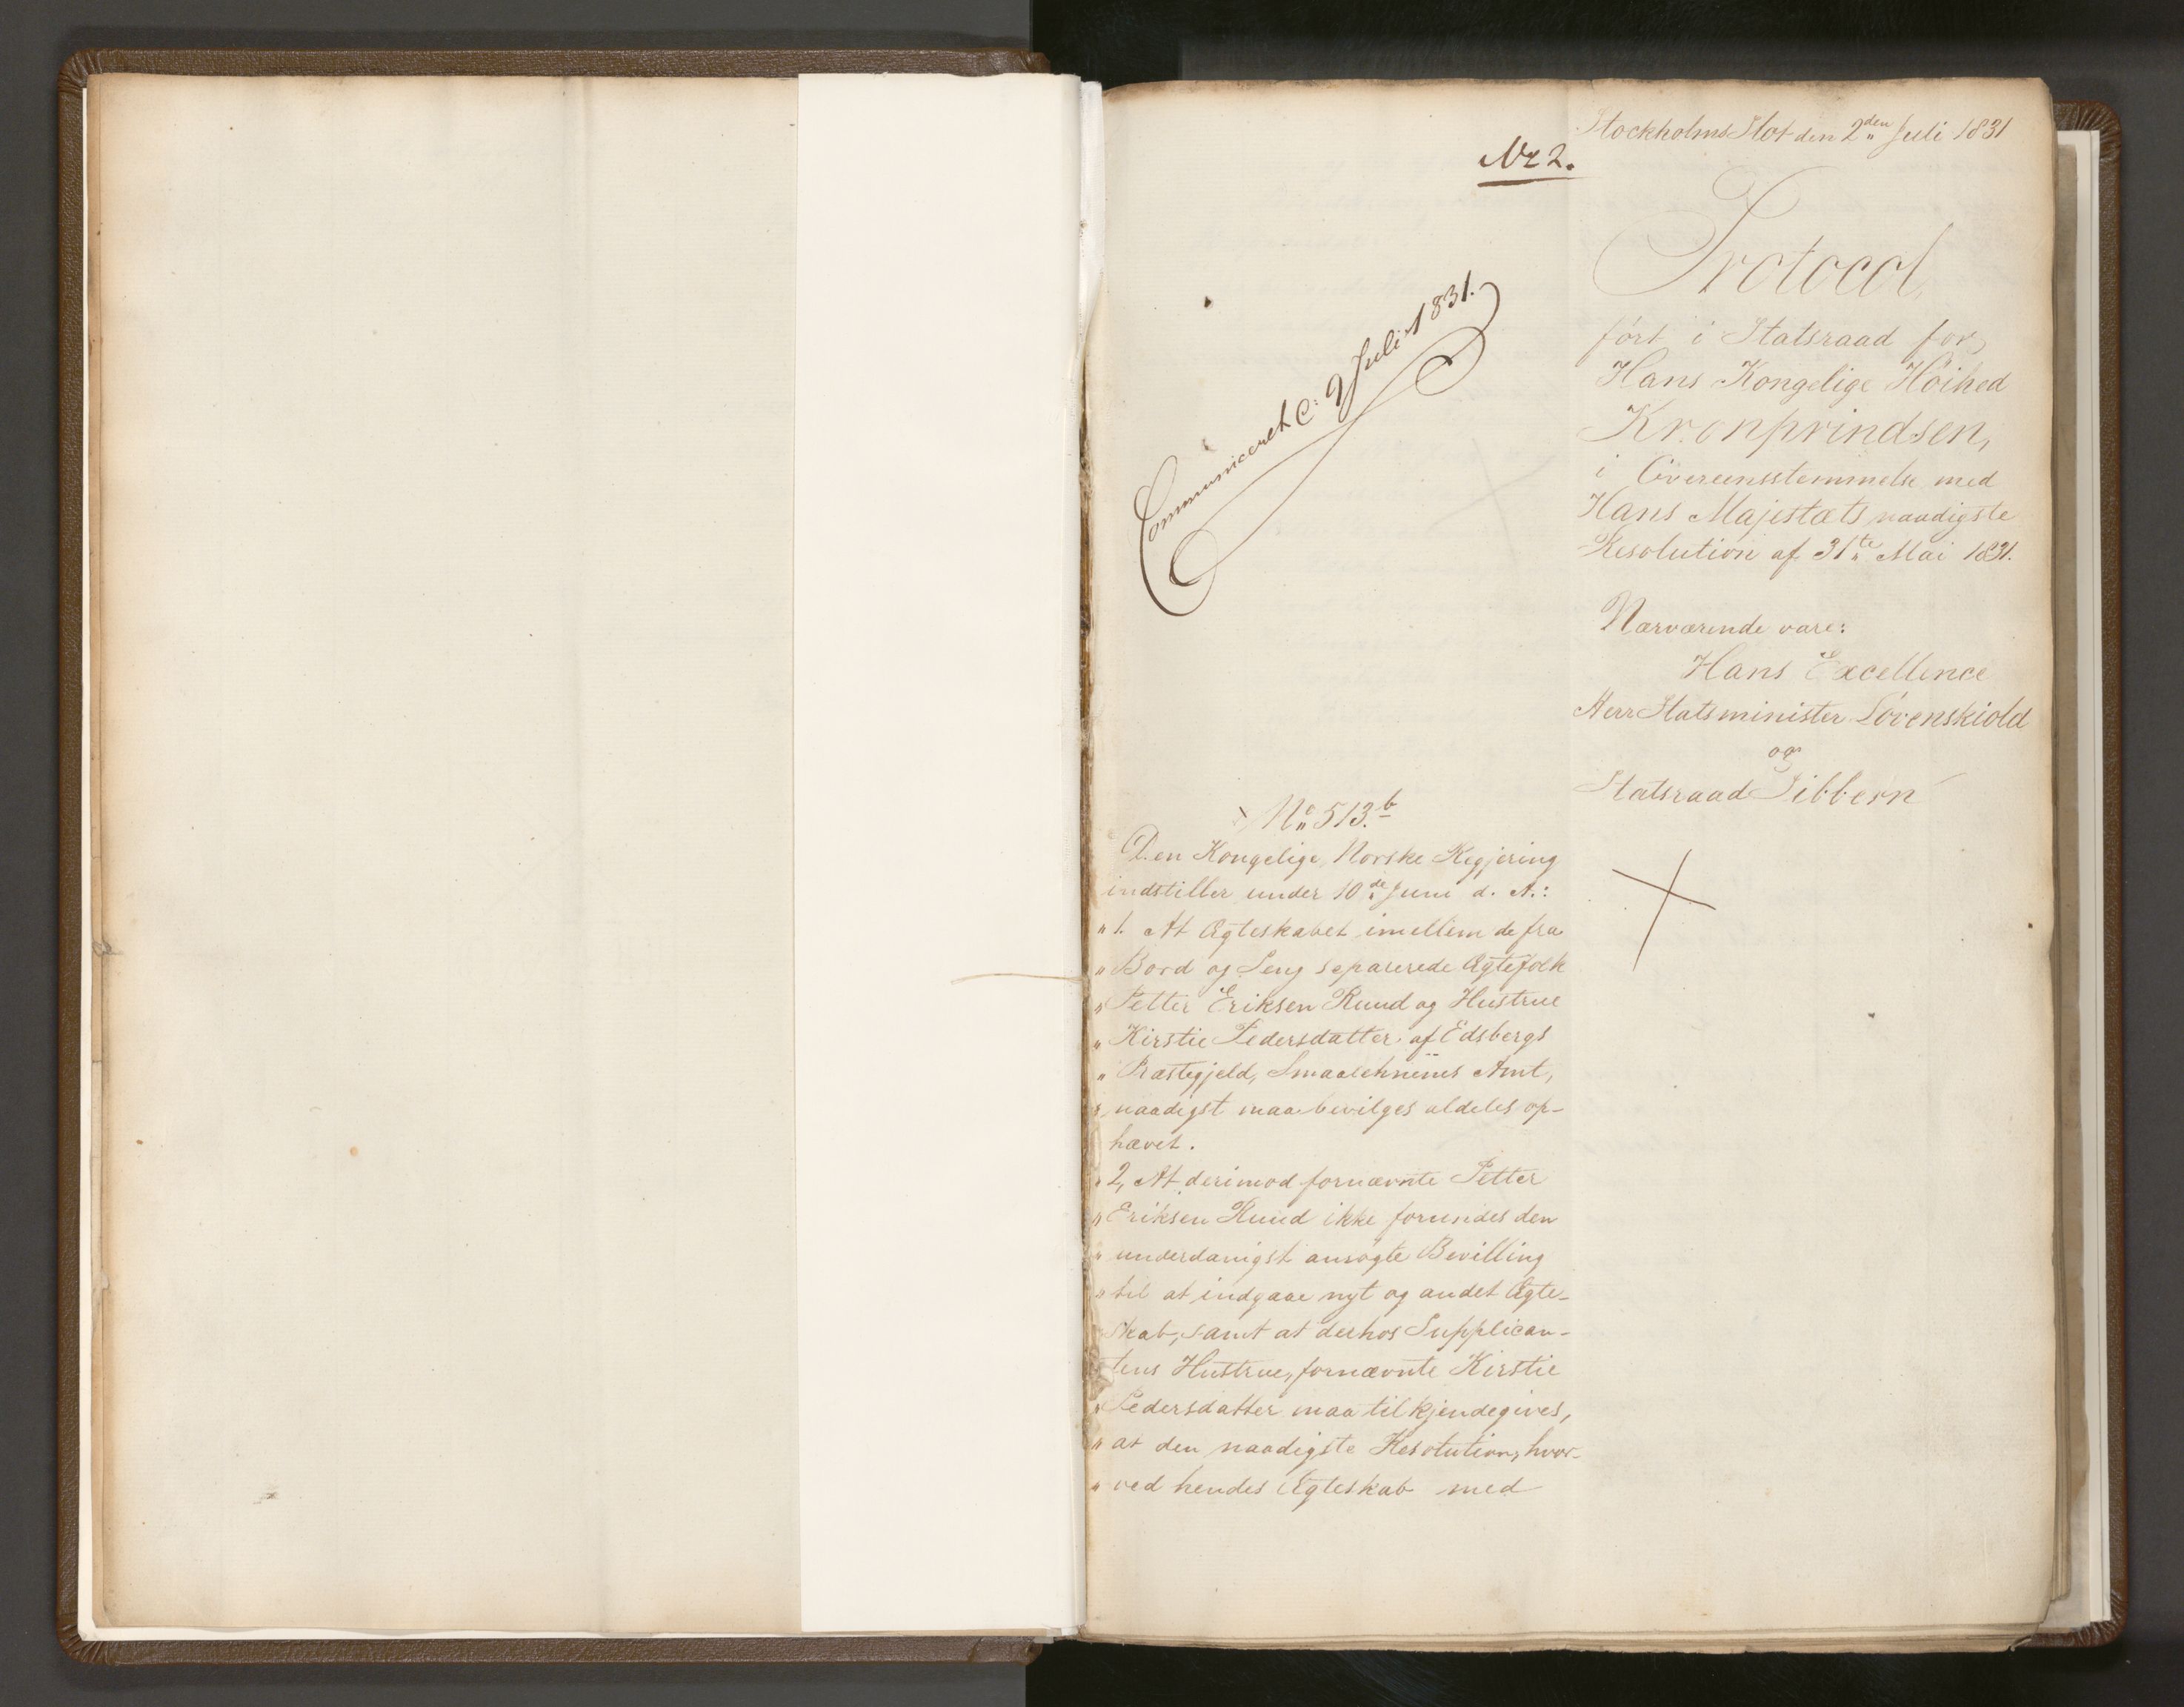 Stockholms Slot den 2den Juli 1831
No 2.
Protocol,
ført i Statsraad for
Hans Kongelige Høihed
Kronprindsen,
i Overeensstemmelse med
Hans Majestæts naadigste
Resolution af 31te Mai 1831.
Communiceret C: 9 Juli 1831.
Nærværende vare:
Hans Excellence
Herr Statsminister Løvenskiold
og
Statsraad Sibbern
No 513.b
Den Kongelige Norske Regjering
indstiller under 10de Juni d. A.:
"1. At Ægteskabet imellem de fra
"Bord og Seng separerede Ægtefolk
"Petter Eriksen Ruud og Hustrue
"Kirstie Pedersdatter af Edsbergs
"Præstegjeld, Smaalehnenes Amt,
"naadigst maa bevilges aldeles op-
hævet.
"2, At derimod fornævnte Petter
"Eriksen Ruud ikke forundes den
"underdanigst ansøgte Bevilling
"til at indgaae nyt og andet Ægte-
skab, samt at derhos Supplican-
tens Hustrue, fornævnte Kirstie
"Pedersdatter maa tilkjendegives,
"at den naadigste Resolution, hvor-
"ved hendes Ægteskab med